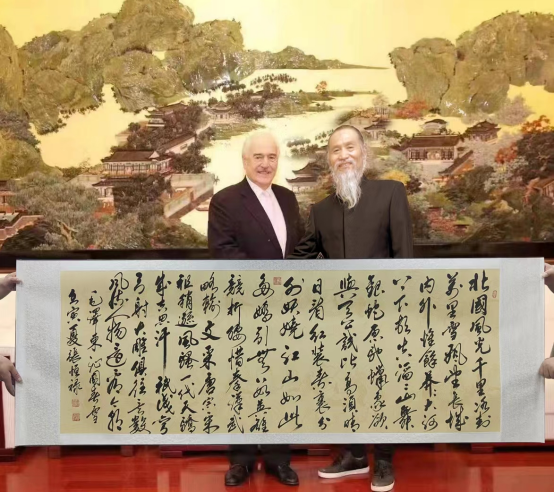 北國風光千里冰封
萬里雪飄望長城
内外惟餘莽大河
上下頓失滔滔山舞
銀蛇原馳蠟象欲
與天公試比高須晴
日看紅裝素裹分
外妖嬈江山如此
多嬌引無數英雄
競折腰惜秦皇漢武
略輸文采唐宗宋
祖稍遜風騷一代天驕
成吉思汗祇識彎
弓射大雕俱往矣數
風流人物還看今朝
毛澤東沁園春雪
壬寅夏張